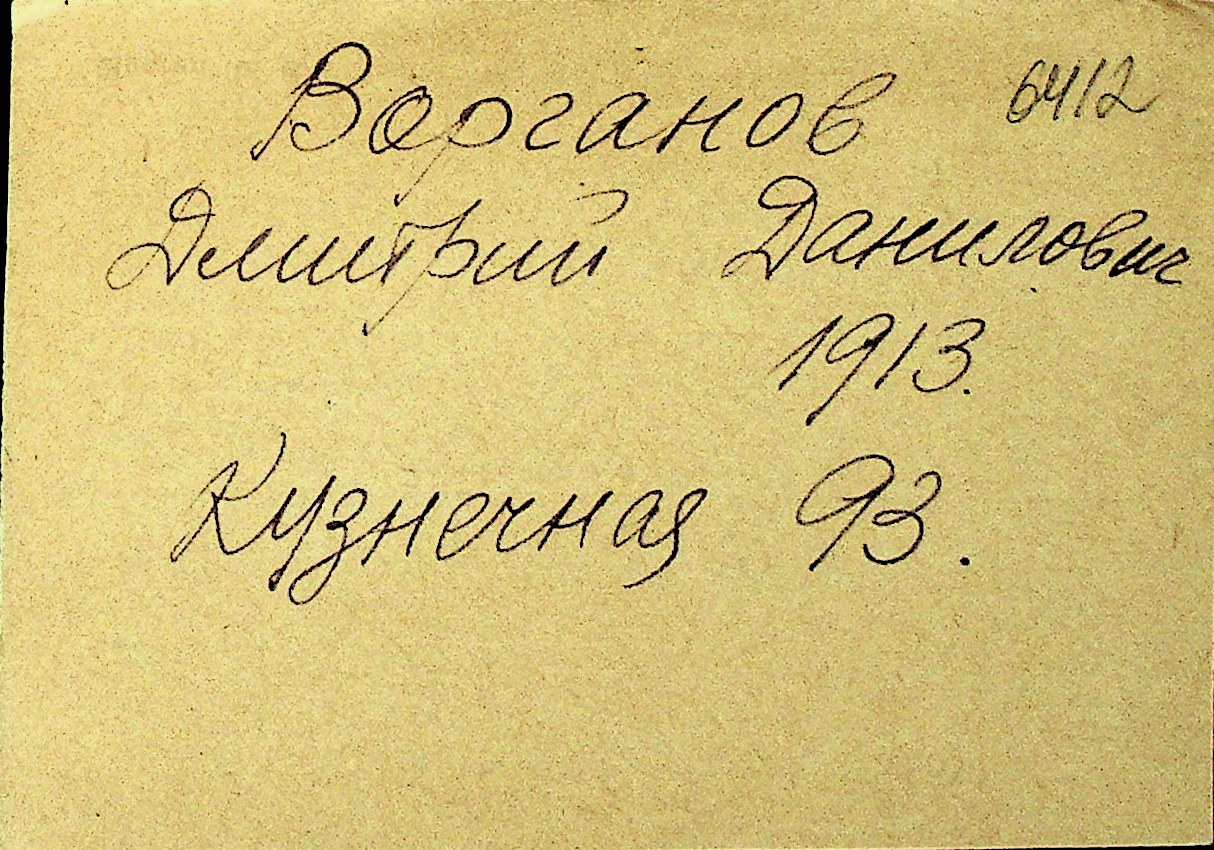 Ворганов 6412
Дмитрий Данилович
1913.
Кузнечная 93.